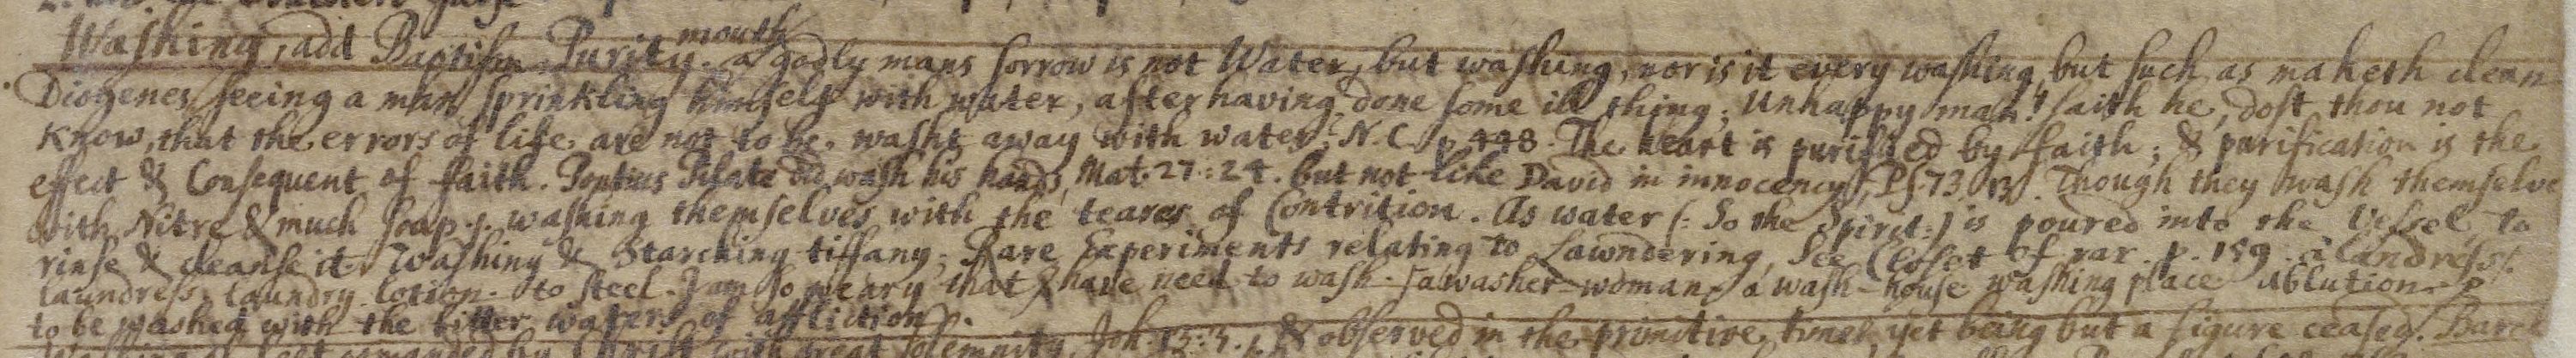 Washing, add Baptism. Purity. mouth a godly mans sorrow is not Water, but washing, nor is it every washing but such as maketh clean
Diogenes seeing a man sprinkling himself with water, after having done some ill thing; Unhappy man! saith he, dost thou not
Know, that the errors of life are not to be washt away with water? N.C. p.448. The heart is purified by faith; & purification is the
effect & Consequent of faith. Pontius Pilate did wash his hands, Mat. 27:24. but not like David in innocency, Ps. 73.13. Though they wash themselve
with Nitre & much soap. washing themselves with the teares of Contrition. As water (: So the Spirit:) is poured into the Vessel to
rinse & cleanse it. Washing & Starching tiffany; Rare Experiments relating to Lawndering, See Closet of rar. p. 159. a Landress.
laundress, laundry. lotion. to steel. I am so weary that I have need to wash. a washer-woman, a wash-house washing place ablution.
to be washed with the bitter waters of affliction.
Washing of feet comanded by Christ with great solemnity, Joh. & observed in the primitive times, yet being but a figure ceased.